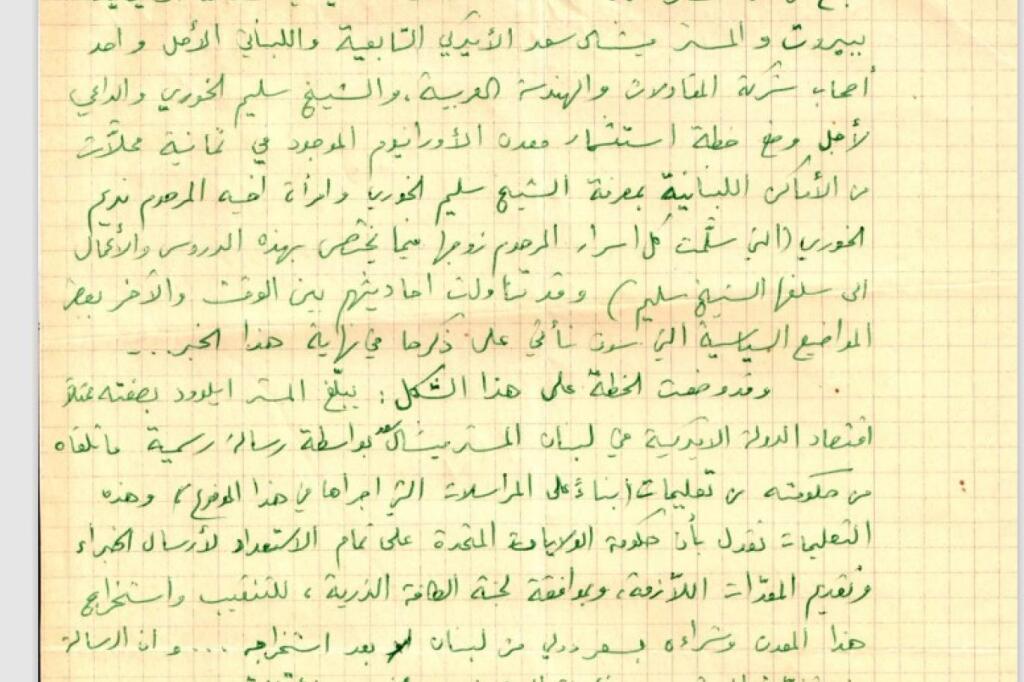 ببيروت والمستر ميشال سعد الأميركي التابعية واللبناني الأصل واحد
أصحاب شركة المقاولات والهندسة العربية، والشيخ سليم الخوري والداعي
لأجل وضع خطة استثمار معدن الأورانيوم الموجود في ثمانية محلّات
من الأماكن اللبنانية بمعرفة الشيخ سليم الخوري وامرأة اخيه المرحوم نديم
الخوري (التي سلّمت كل اسرار المرحوم زوجها فيما يختص بهذه الدروس والأعمال
الى سلفها الشيخ سليم) وقد تناولت احاديثهم بين الوقت والآخر بعض
المواضيع السياسية التي سوف نأتي على ذكرها في نهاية هذا الخبر...
وقد وضعت الخطة على هذا الشكل: يبلّغ المستر ايلوود بصفته ممثلاً
اقتصاد الدولة الاميركية في لبنان المستر ميشال سعد بواسطة رسالة رسمية ما تلقاه
من حكومته من تعليمات (بناءً على المراسلات التي اجراها في هذا الموضوع) وهذه
التعليمات تقول بأن حكومة الولايات المتحدة على تمام الاستعداد لأرسال الخبراء
وتقديم المعدّات اللازمة، وبموافقة لجنة الطاقة الذرية، للتنقيب واستخراج
هذا المعدن وشراءه بسعر دولي من لبنان بعد استخراجه ... وان الرسالة